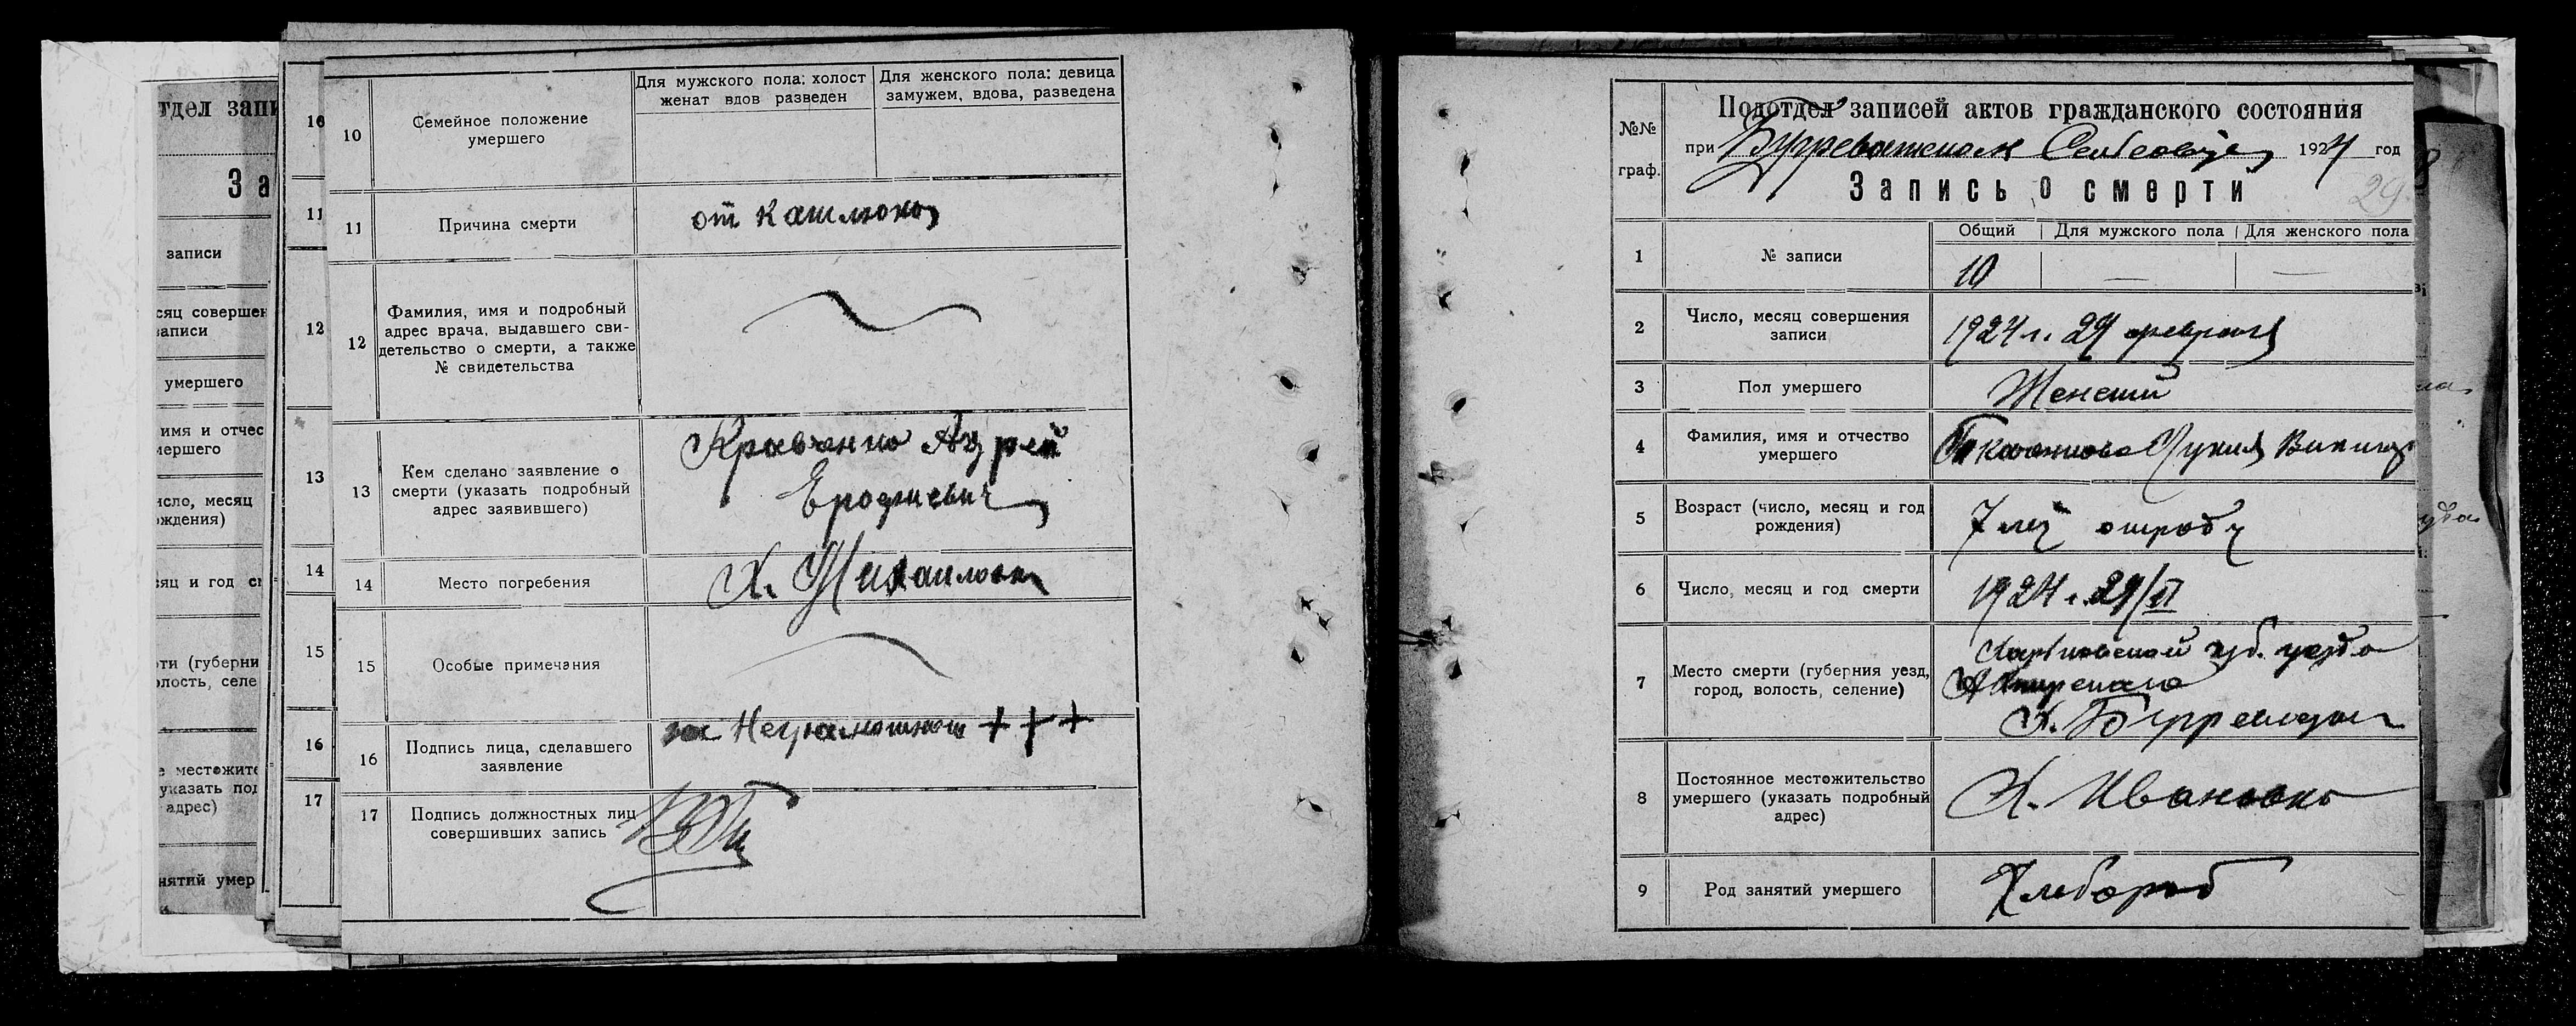 тдел запи
За
записи
сяц совершен
записи
умершего
имя и отчес
мершего
исло, месяц
ождения)
яц и год с
ти (губерни
олость, селе
е местожите
указать под
адрес)
нятий умер
10
11
12
13
14
15
16
17
10
Семейное положение
умершего
Для мужского пола: холост
женат вдов разведен
Для женского пола: девица
замужем, вдова, разведена
11
Причина смерти
от кашлюка
12
Фамилия, имя и подробный
адрес врача, выдавшего сви-
детельство о смерти, а также
№ свидетельства
13
Кем сделано заявление о
смерти (указать подробный
адрес заявившего)
Кравченко
Ерофиевич
14
Место погребения
Х. Михаиловка
15
Особые примечания
16
Подпись лица, сделавшего
заявление
за Неграмотного + + +
17
Подпись должностных лиц
совершивших запись
№№
граф.
Подотдел записей актов гражданского состояния
при 1924 год
Запись о смерти
29
1
№ записи
Общий
Для мужского пола
Для женского пола
10
—
—
2
Число, месяц совершения
записи
1924 г. 29 февраля
3
Пол умершего
Женский
4
Фамилия, имя и отчество
умершего
5
Возраст (число, месяц и год
рождения)
7 лет отроду
6
Число, месяц и год смерти
1924 г. 29/II
7
Место смерти (губерния уезд,
город, волость, селение)
Харьковской губ. уезда
Ахтирского
8
Постоянное местожительство
умершего (указать подробный
адрес)
Х. Ивановка
9
Род занятий умершего
Хлебороб